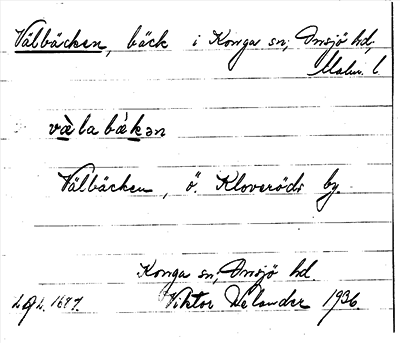 Välbäcken, bäck i Konga sn, Onsjö hd,
Malm. l.
vàlabǽkən
Välbäcken, ö. Kloveröds by.
Konga sn, Onsjö hd.
Viktor Welander 1936.